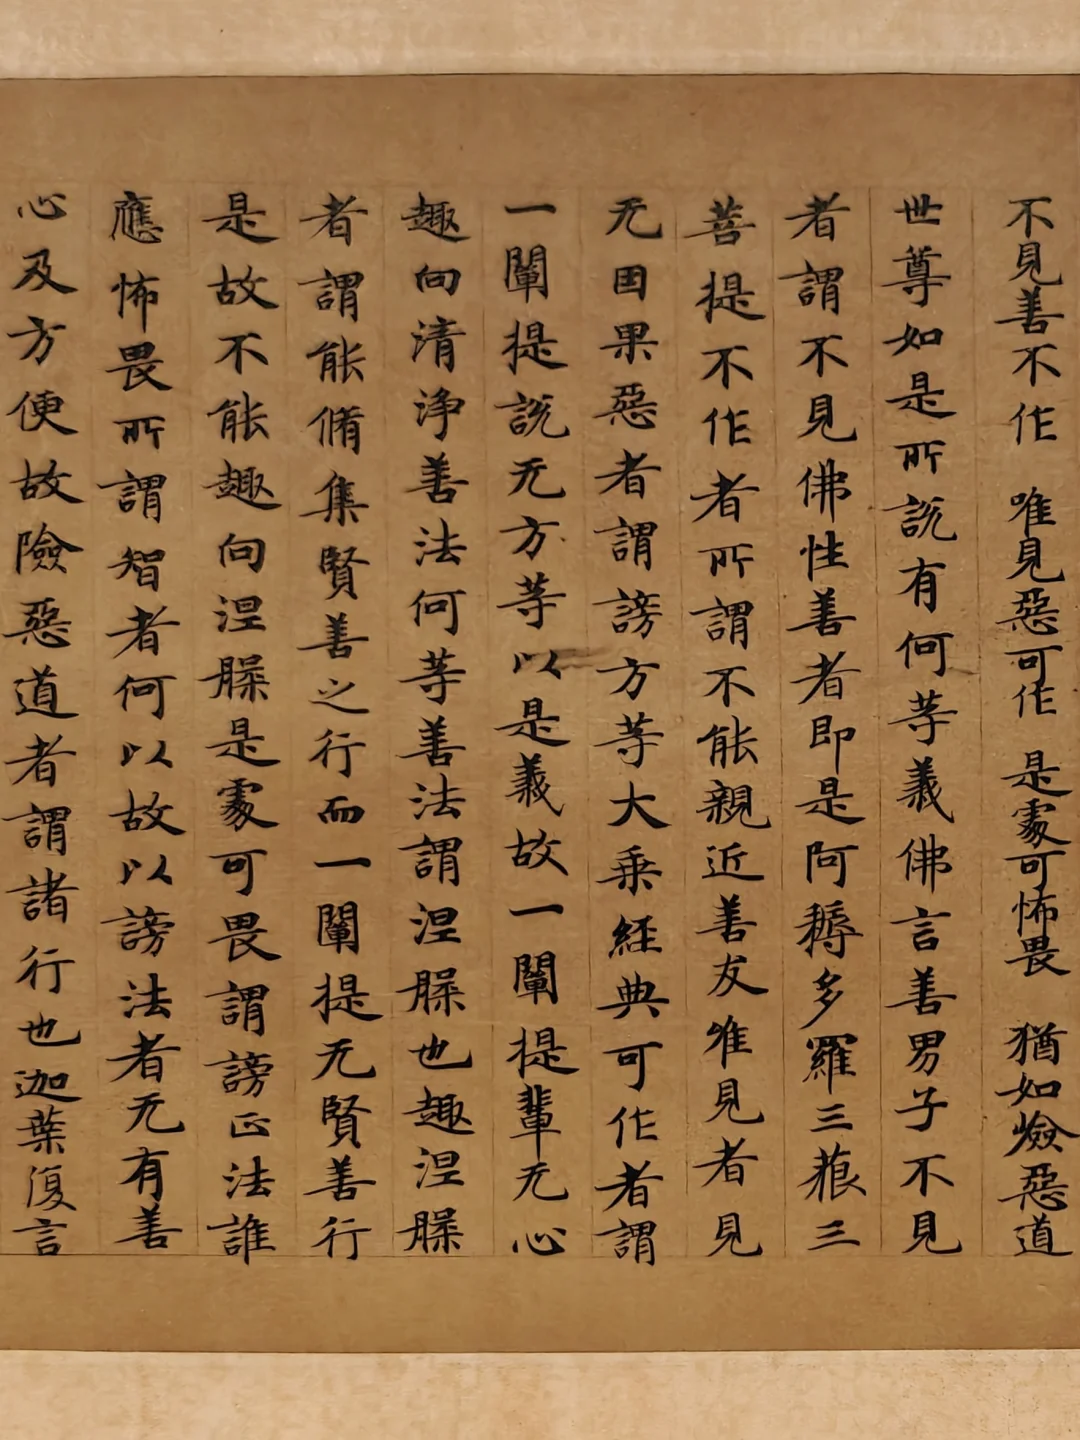 不見善不作　唯見惡可作　是處可怖畏　猶如險惡道
世尊如是所說有何等義佛言善男子不見
者謂不見佛性善者即是阿耨多羅三藐三
菩提不作者所謂不能親近善友唯見者見
无因果惡者謂謗方等大乘經典可作者謂
一闡提說无方等以是義故一闡提輩无心
趣向清淨善法何等善法謂涅槃也趣涅槃
者謂能脩集賢善之行而一闡提无賢善行
是故不能趣向涅槃是處可畏謂謗正法誰
應怖畏所謂智者何以故以謗法者无有善
心及方便故險惡道者謂諸行也迦葉復言